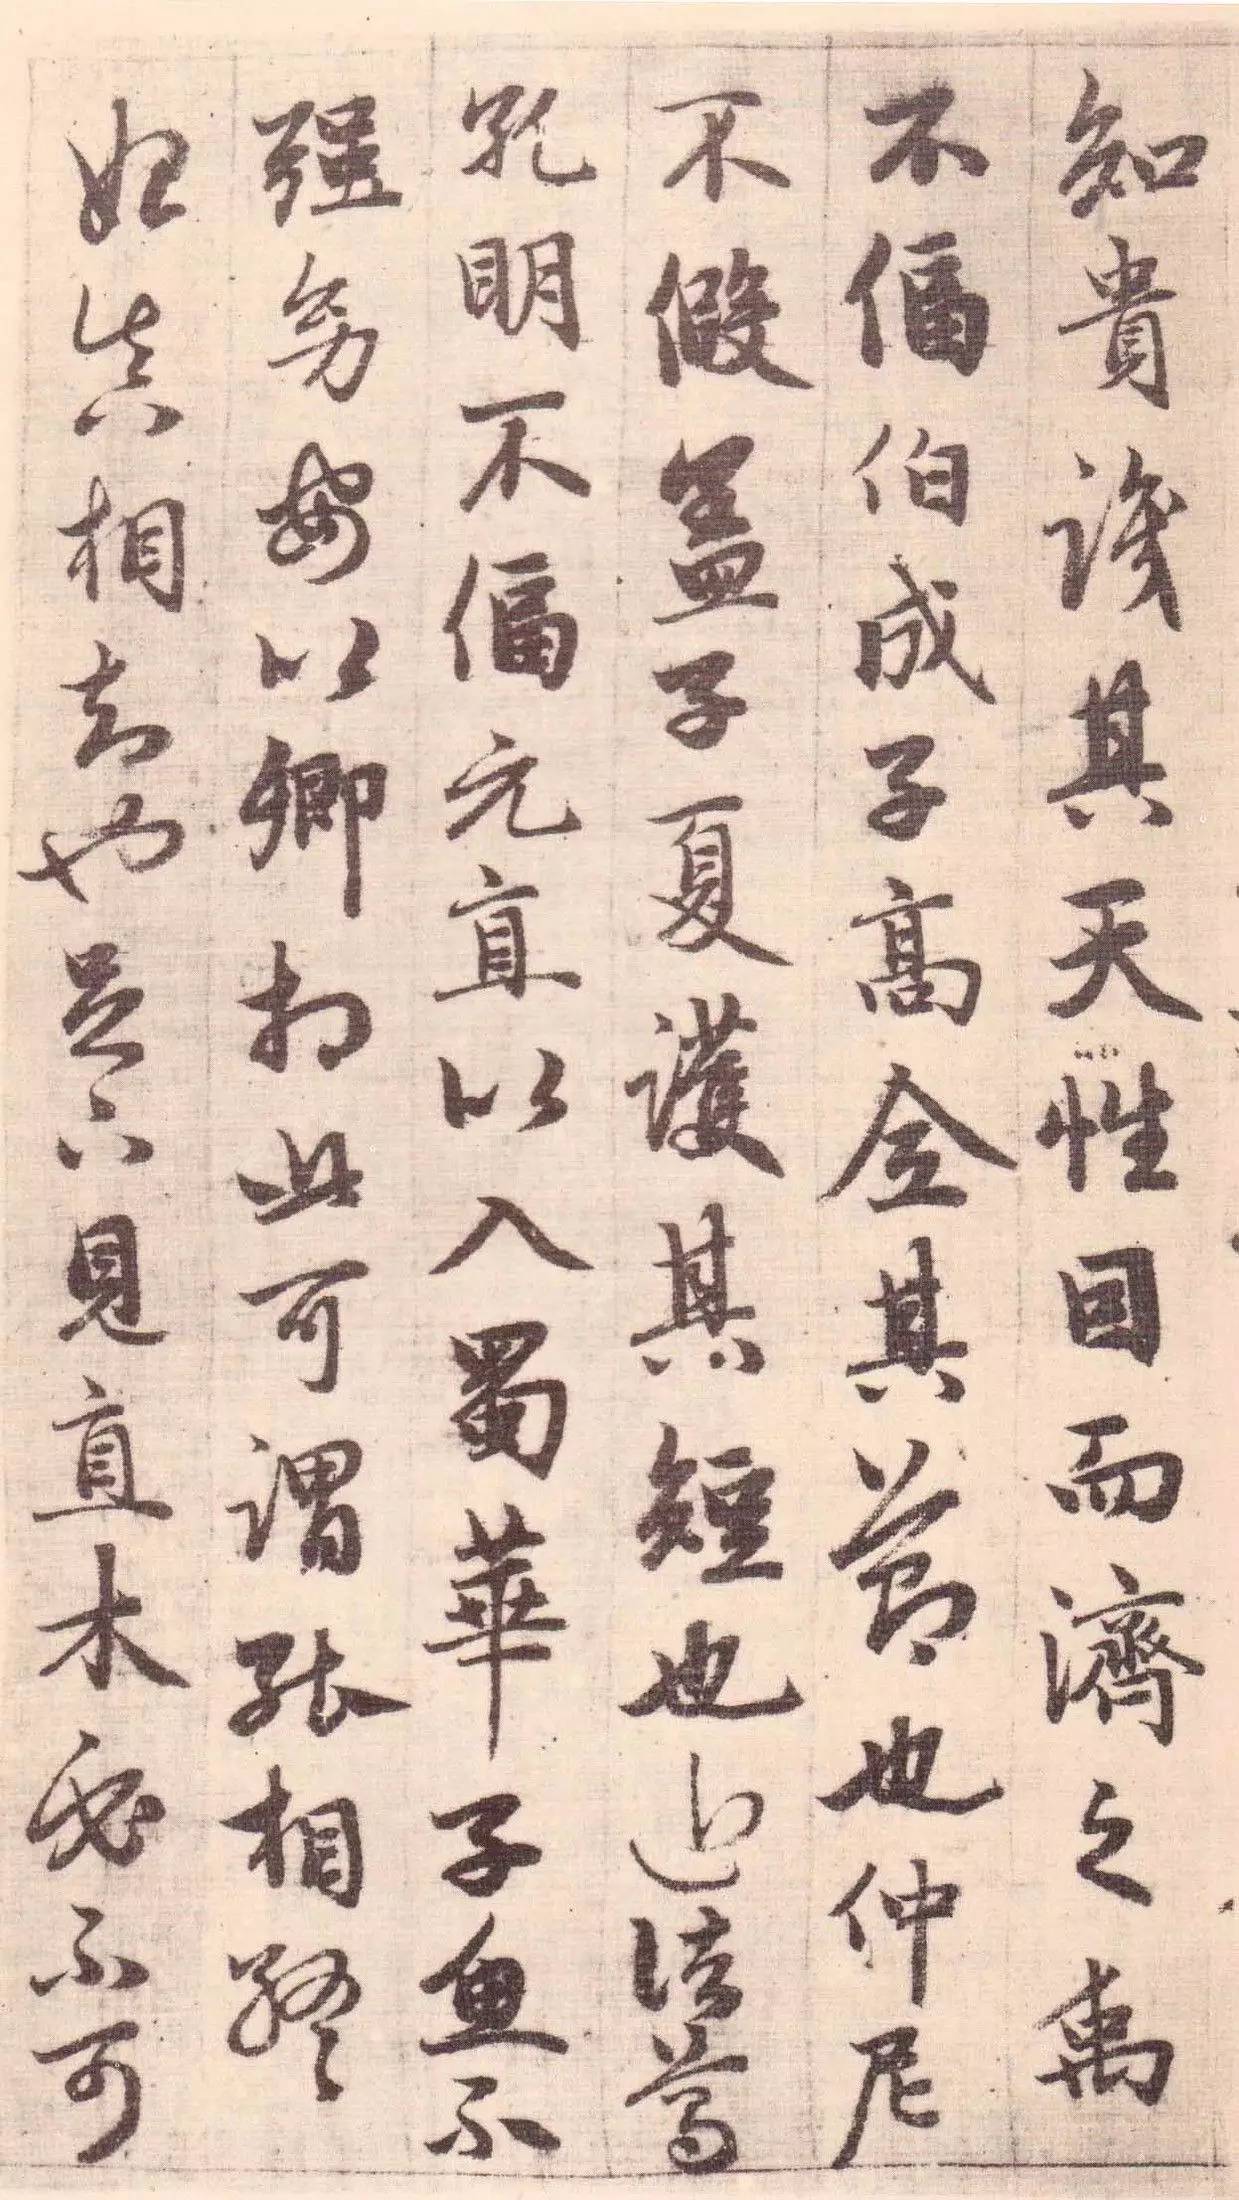 知貴識其天性因而濟之禹
不偪伯成子高全其節也仲尼
不假盖子夏護其短也近諸葛
孔明不偪元直以入蜀華子魚不
強幼安以卿相此可謂能相終
始真相知也足下見直木必不可